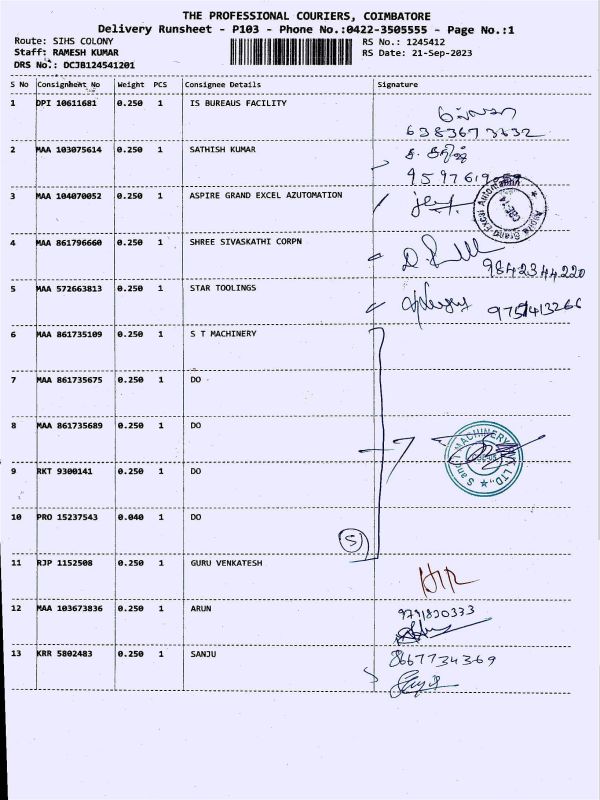 THE PROFESSIONAL COURIERS, COIMBATORE
Delivery Runsheet - P103 - Phone No.:0422-3505555 - Page No.:1
Route: SIHS COLONY
RS No.: 1245412
Staff: RAMESH KUMAR
RS Date: 21-Sep-2023
DRS No.: DCJB124541201
S No Consignment No Weight PCS Consignee Details Signature
1 DPI 10611681 0.250 1 IS BUREAUS FACILITY
6383673632
2 MAA 103075614 0.250 1 SATHISH KUMAR
3 MAA 104070052 0.250 1 ASPIRE GRAND EXCEL AZUTOMATION
4 MAA 861796660 0.250 1 SHREE SIVASKATHI CORPN
9842344220
5 MAA 572663813 0.250 1 STAR TOOLINGS
9751413266
6 MAA 861735109 0.250 1 S T MACHINERY
7 MAA 861735675 0.250 1 DO
8 MAA 861735689 0.250 1 DO
9 RKT 9300141 0.250 1 DO
10 PRO 15237543 0.040 1 DO
5
11 RJP 1152508 0.250 1 GURU VENKATESH
12 MAA 103673836 0.250 1 ARUN
9791830333
13 KRR 5802483 0.250 1 SANJU
8667734369